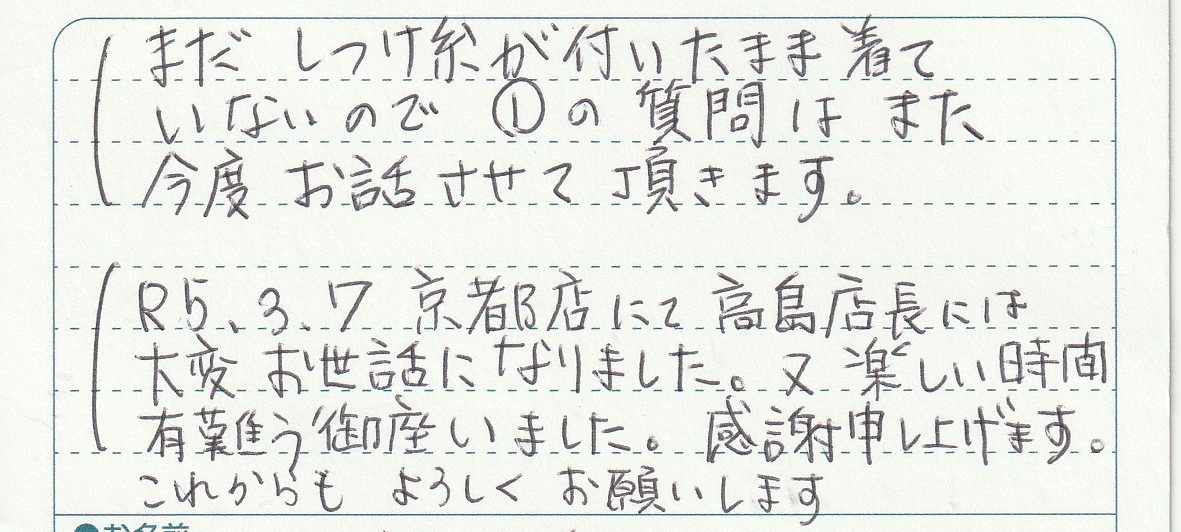 まだ しつけ糸が付いたまま着て
いないので ①の 質問は また
今度 お話させて頂きます。
R5.3.7 京都店にて 高島店長には
大変 お世話になりました。又 楽しい時間
有難う御座いました。感謝申し上げます。
これからも よろしく お願いします
●お名前